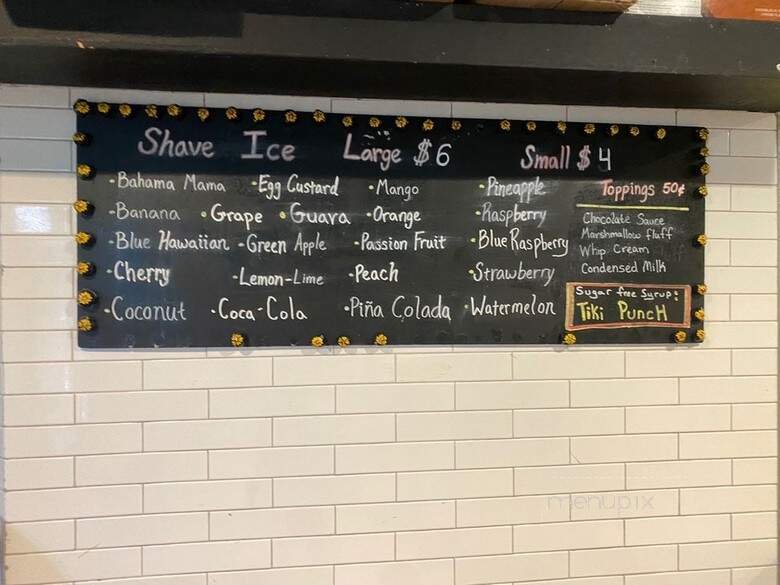 Shave Ice Large $6 Small $4
·Bahama Mama ·Egg Custard ·Mango ·Pineapple
·Banana ·Grape ·Guava ·Orange ·Raspberry
·Blue Hawaiian ·Green Apple ·Passion Fruit ·Blue Raspberry
·Cherry ·Lemon-Lime ·Peach ·Strawberry
·Coconut ·Coca-Cola ·Piña Colada ·Watermelon
Toppings 50¢
Chocolate Sauce
Marshmallow fluff
Whip Cream
Condensed Milk
Sugar free Syrup:
Tiki Punch
menupix